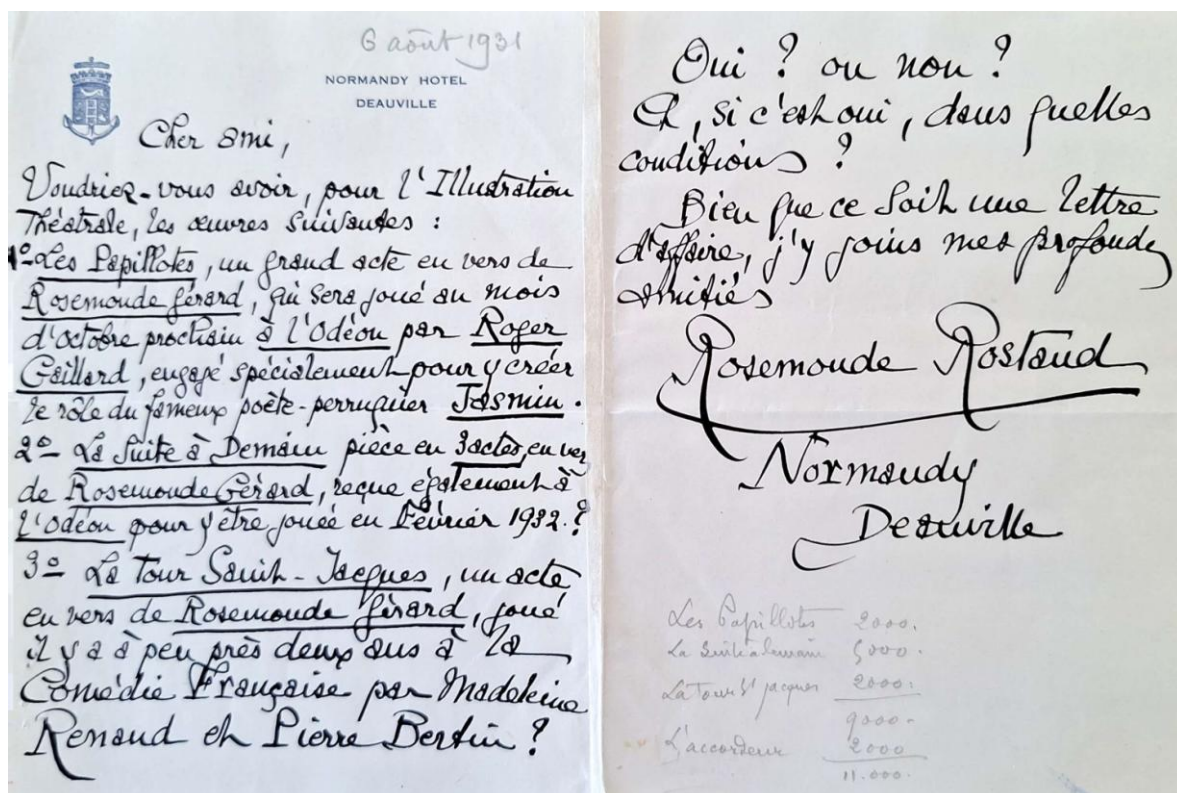 6 août 1931
NORMANDY HOTEL
DEAUVILLE
Cher ami,
Voudriez-vous avoir, pour l'Illustration
Théâtrale, les œuvres suivantes :
1º Les Papillotes, un grand acte en vers de
Rosemonde Gérard, qui sera joué au mois
d'octobre prochain à l'Odéon par Roger
Gaillard, engagé spécialement pour y créer
le rôle du fameux poète-perruquier Jasmin.
2º La Suite à Demain pièce en 3 actes, en vers
de Rosemonde Gérard, reçue également à
l'Odéon pour y être jouée en Février 1932. ?
3º La Tour Saint-Jacques, un acte
en vers de Rosemonde Gérard, joué
il y a à peu près deux ans à la
Comédie Française par Madeleine
Renaud et Pierre Bertin ?
Oui ? ou non ?
Et, si c'est oui, dans quelles
conditions ?
Bien que ce soit une lettre
d'affaire, j'y joins mes profondes
amitiés
Rosemonde Rostand
Normandy
Deauville
Les Papillotes 2000.
La Suite à demain 5000.
La Tour St Jacques 2000.
9000.
L'accordeur 2000
11.000.